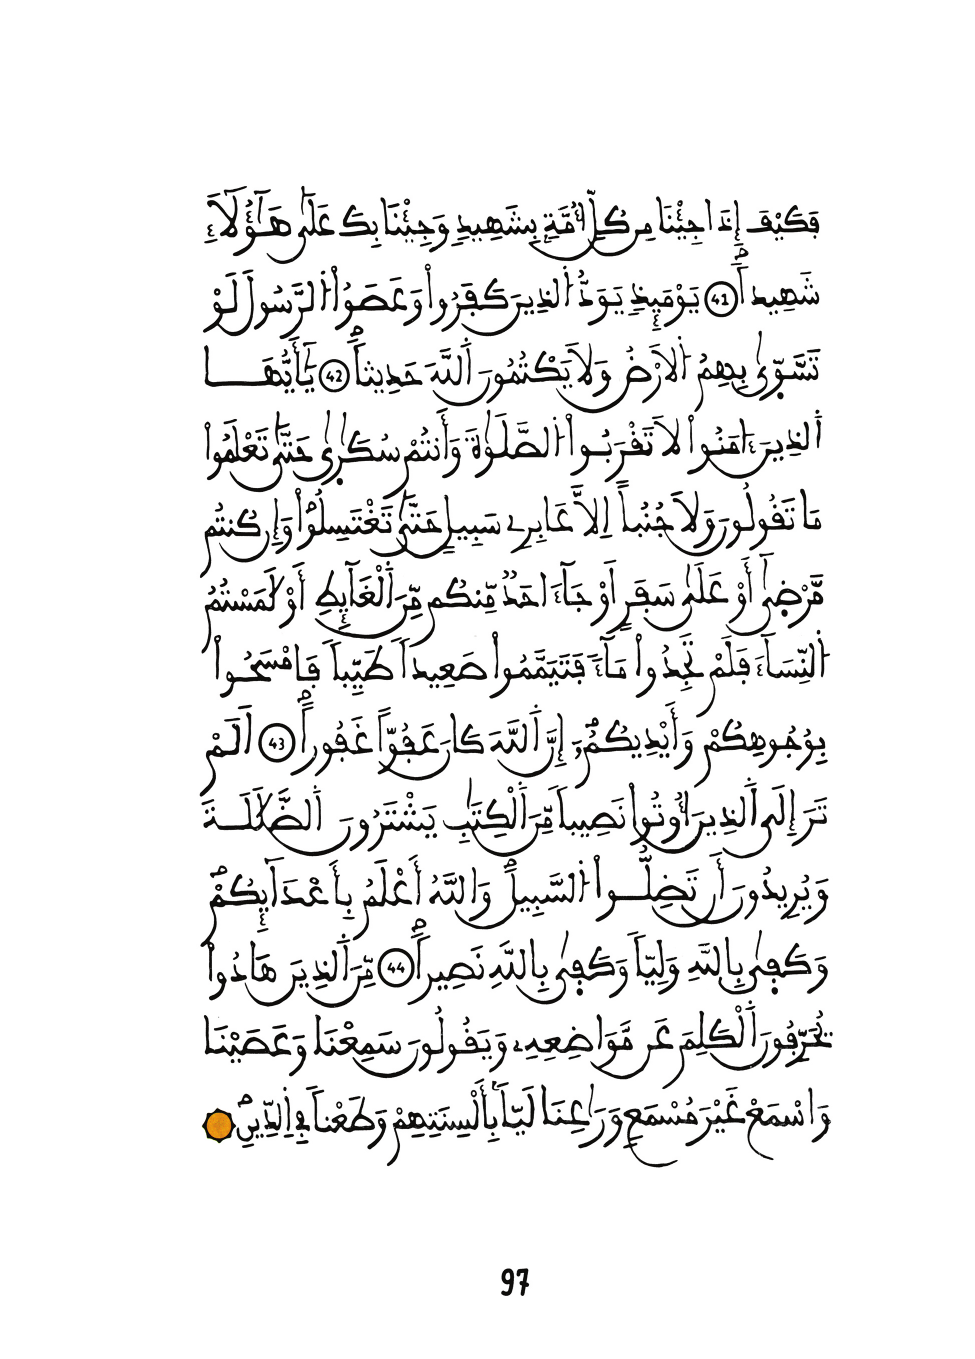 فَكَيْفَ إِذَا جِئْنَا مِن كُلِّ أُمَّةٍۢ بِشَهِيدٍ وَجِئْنَا بِكَ عَلَىٰ هَٰٓؤُلَآءِ
شَهِيداً 41 يَوْمَئِذٍ يَوَدُّ اُ۬لذِينَ كَفَرُواْ وَعَصَوُاْ اُ۬لرَّسُولَ لَوْ
تَسَّوّ۪ىٰ بِهِمُ اُ۬لَارْضُ وَلَا يَكْتُمُونَ اَ۬للَّهَ حَدِيثاً 42 يَٰٓأَيُّهَا
اَ۬لذِينَ ءَامَنُواْ لَا تَقْرَبُواْ اُ۬لصَّلَوٰةَ وَأَنتُمْ سُكَٰر۪ىٰ حَتَّىٰ تَعْلَمُواْ
مَا تَقُولُونَ وَلَا جُنُباً اِلَّا عَابِرِے سَبِيلٍ حَتَّىٰ تَغْتَسِلُواْ وَإِن كُنتُم
مَّرْض۪ىٰٓ أَوْ عَلَىٰ سَفَرٍ أَوْ جَآءَ احَدٞ مِّنكُم مِّنَ اَ۬لْغَآئِطِ أَوْ لَٰمَسْتُمُ
اُ۬لنِّسَآءَ فَلَمْ تَجِدُواْ مَآءٗ فَتَيَمَّمُواْ صَعِيداٗ طَيِّباٗ فَامْسَحُواْ
بِوُجُوهِكُمْ وَأَيْدِيكُمُۥٓ إِنَّ اَ۬للَّهَ كَانَ عَفُوّاً غَفُوراً 43 أَلَمْ
تَرَ إِلَى اَ۬لذِينَ أُوتُواْ نَصِيباٗ مِّنَ اَ۬لْكِتَٰبِ يَشْتَرُونَ اَ۬لضَّلَٰلَةَ
وَيُرِيدُونَ أَن تَضِلُّواْ اُ۬لسَّبِيلَ وَاللَّهُ أَعْلَمُ بِأَعْدَآئِكُمْ
وَكَف۪ىٰ بِاللَّهِ وَلِيّاٗ وَكَف۪ىٰ بِاللَّهِ نَصِيراً 44 مِّنَ اَ۬لذِينَ هَادُواْ
يُحَرِّفُونَ اَ۬لْكَلِمَ عَن مَّوَاضِعِهِۦ وَيَقُولُونَ سَمِعْنَا وَعَصَيْنَا
وَاسْمَعْ غَيْرَ مُسْمَعٍ وَرَٰعِنَا لَيّاَۢ بِأَلْسِنَتِهِمْ وَطَعْناٗ فِے اِ۬لدِّينِ
97